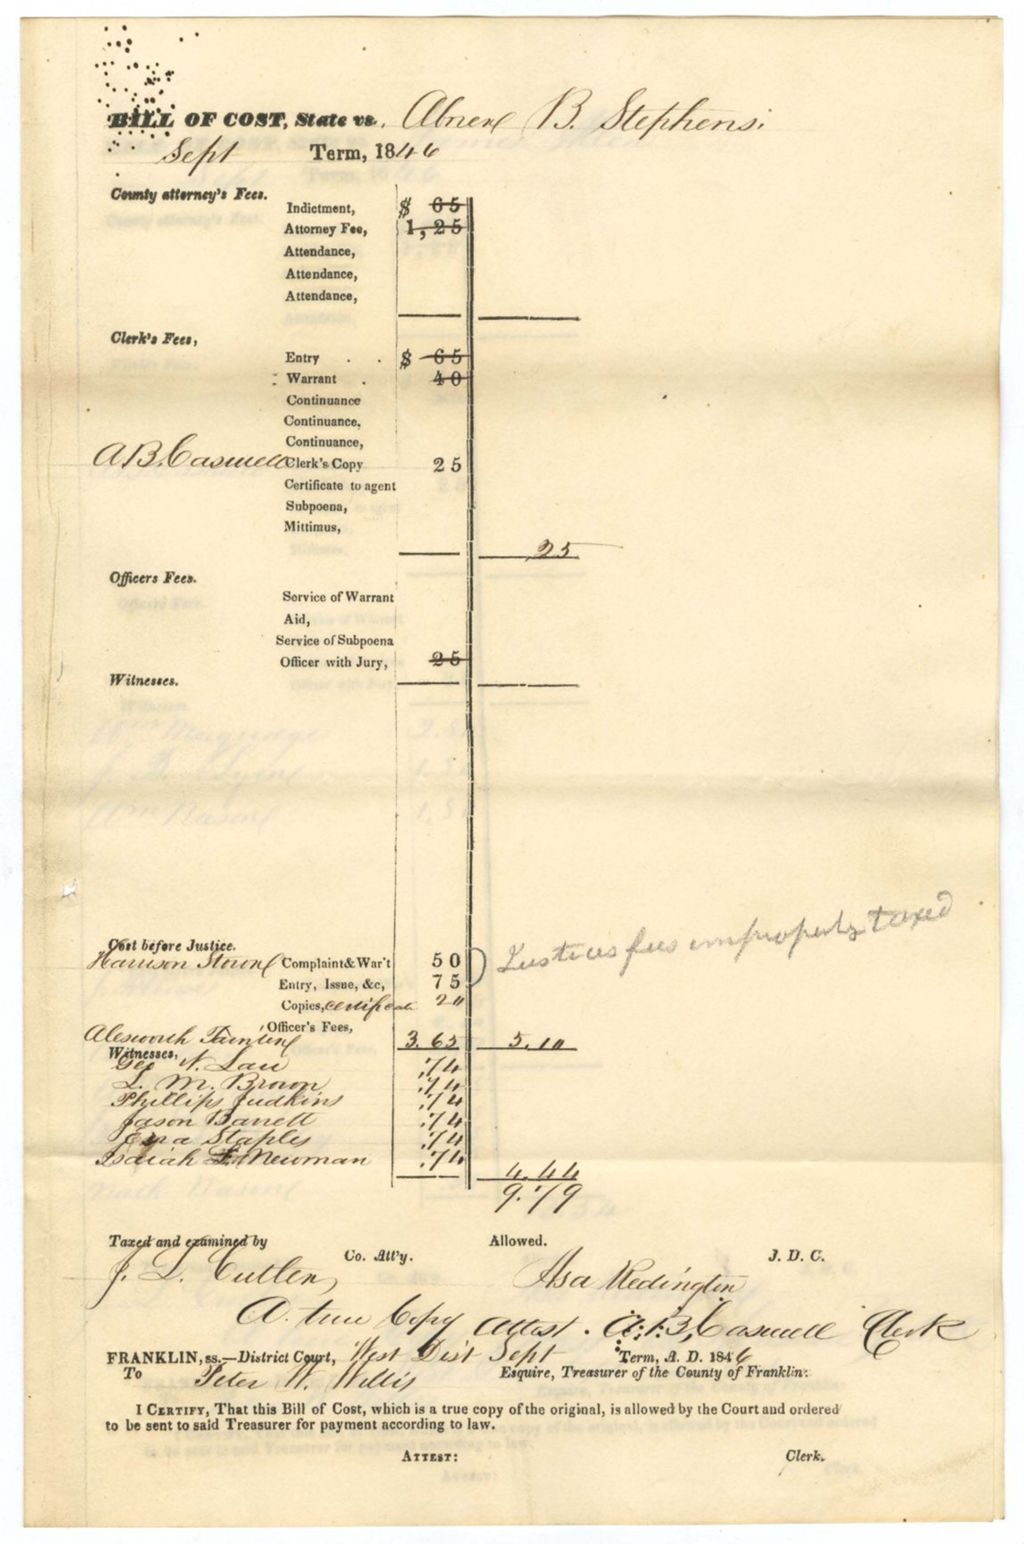 BILL OF COST, State vs. Abner B. Stephens.
Sept Term, 1846
County attorney's Fees.
Indictment, $ 65
Attorney Fee, 1,25
Attendance,
Attendance,
Attendance,
Clerk's Fees,
Entry . . $ 65
Warrant . 40
Continuance
Continuance,
Continuance,
A.B. Caswell Clerk's Copy 25
Certificate to agent
Subpoena,
Mittimus,
25
Officers Fees.
Service of Warrant
Aid,
Service of Subpoena
Officer with Jury, 25
Witnesses.
Cost before Justice.
Harrison Complaint & War't 50
Justices fees improperly taxed
Entry, Issue, &c, 75
Copies, certificate 20
Officer's Fees,
3.65 5.10
Witnesses,
Geo N. .74
L. M. Brown .74
Phillips Judkins .74
Jason Barrett .74
Ezra Staples .74
Isaiah Newman .74
4.44
9.79
Taxed and examined by Allowed.
Co. Att'y. J. D. C.
J. L. Cutler, Asa Redington
A. true Copy Attest. A. B. Caswell Clerk
FRANKLIN, ss.—District Court, West Dist Sept Term, A. D. 1846
To Peter W. Willis Esquire, Treasurer of the County of Franklin:
I CERTIFY, That this Bill of Cost, which is a true copy of the original, is allowed by the Court and ordered
to be sent to said Treasurer for payment according to law.
ATTEST: Clerk.